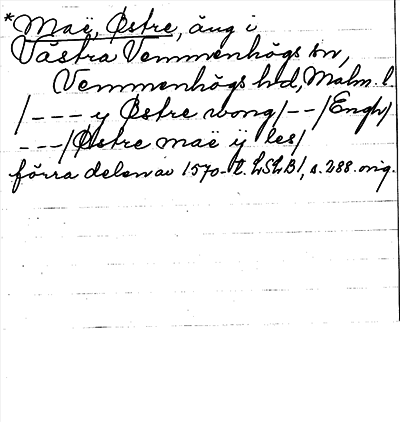 *Maë, Østre, äng i
Västra Vemmenhögs sn,
Vemmenhögs hd, Malm. l.
/--- y Østre wong/--/Engh/
---/Østre maë ÿ les/
förra delen av 1570-t. LSLB1, s. 288. orig.